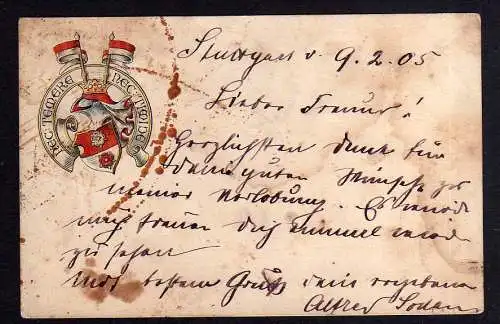 NEC TEMERE NEC TIMIDE
Stuttgart d. 9. 2. 05
Lieber Freund!
Herzlichsten Dank für
deine guten Wünsche zu
meiner Verlobung. Es würde
mich freuen Dich einmal wieder
zu sehen
Mit bestem Gruß dein ergebener
Alfred